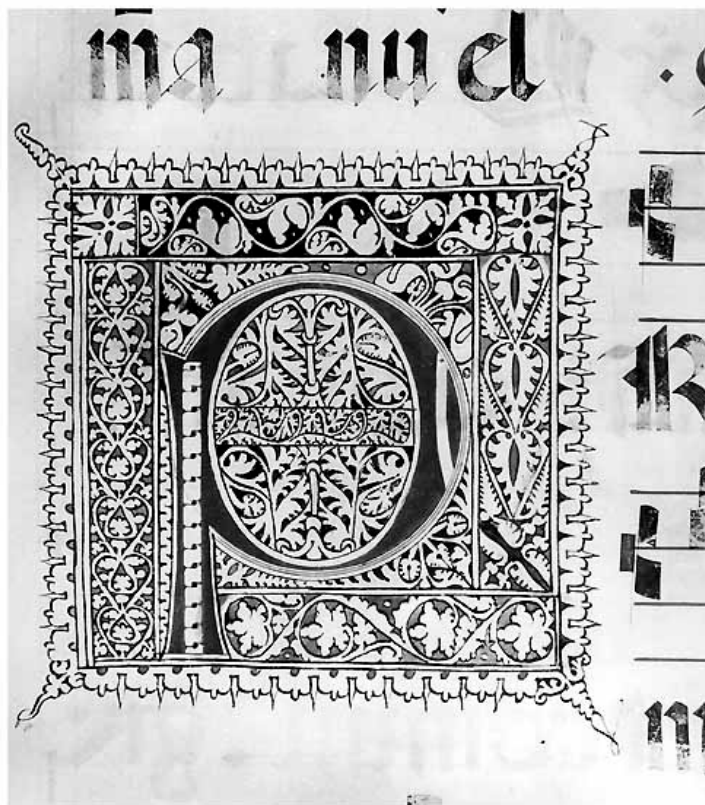 mā nu el
P
R
m